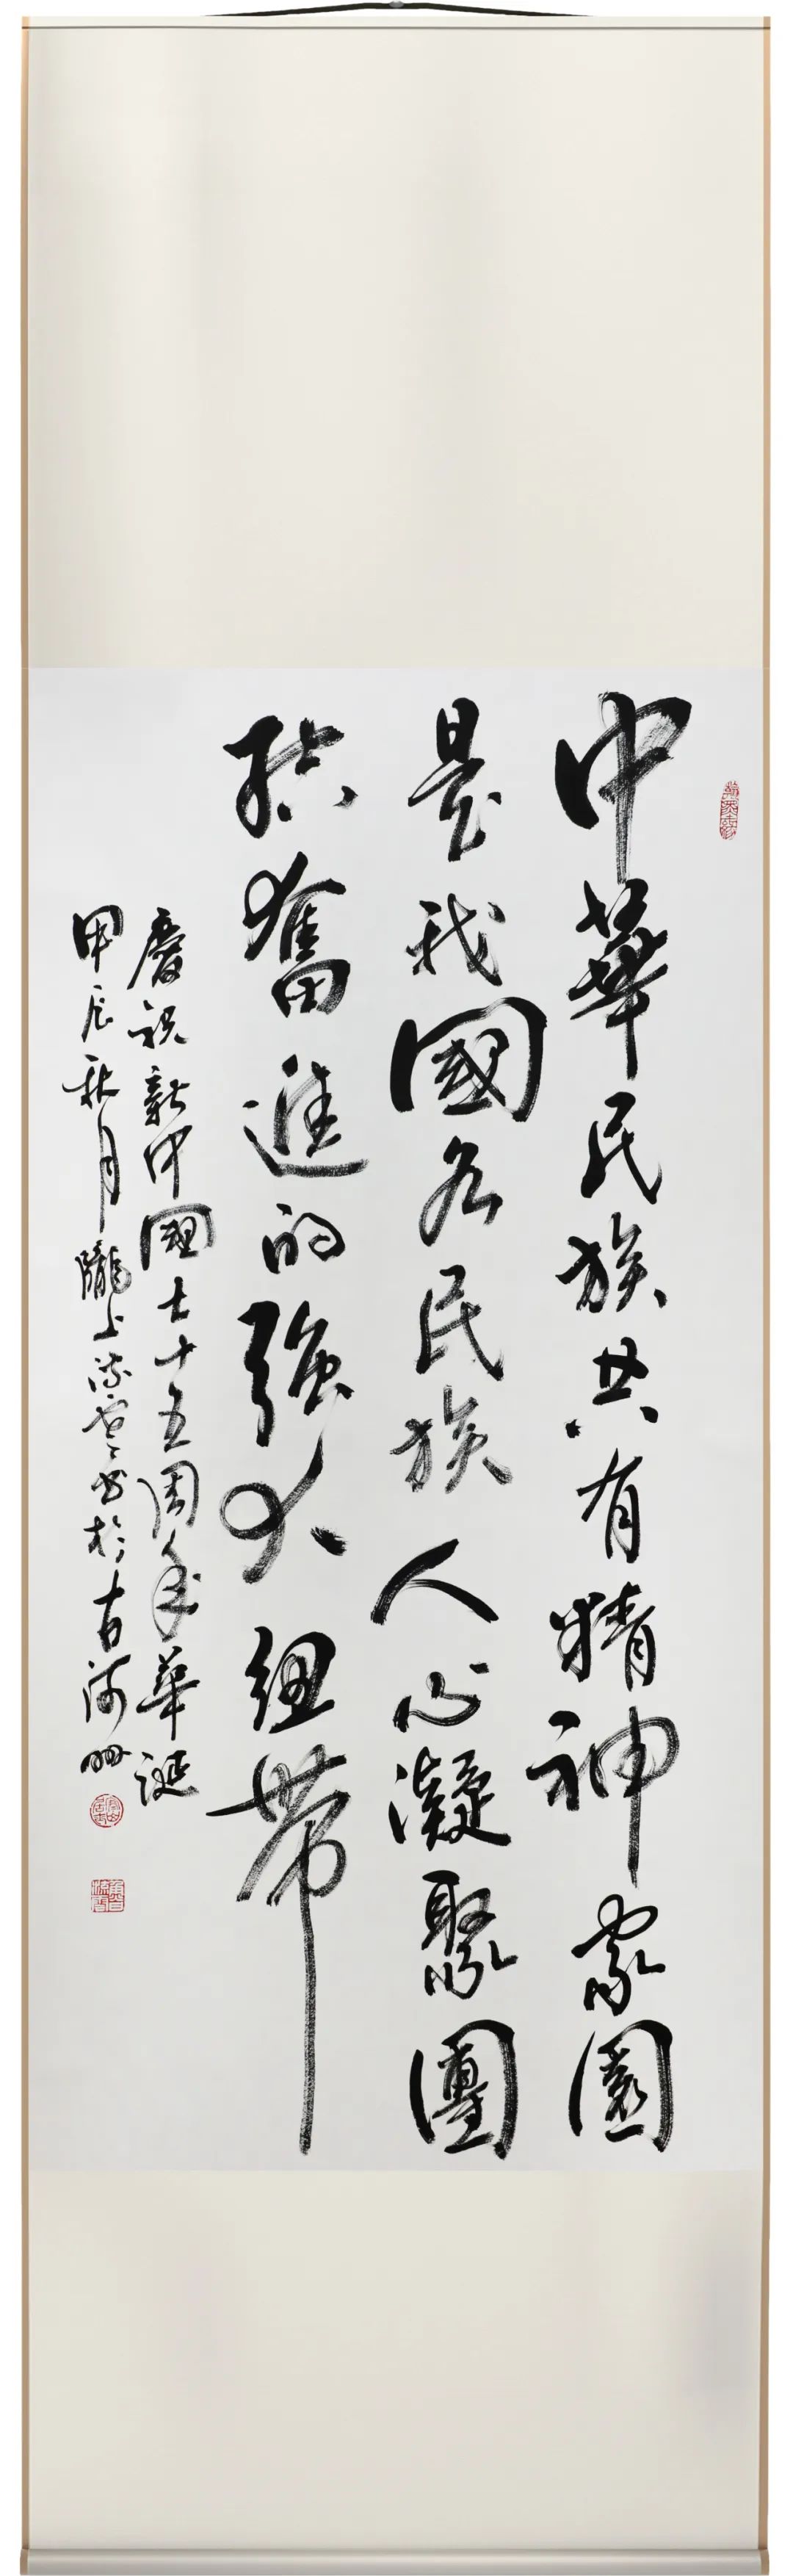 中華民族共有精神家園
是我國各民族人心凝聚團
結奮進的強大紐帶
慶祝新中國七十五周年華誕
甲辰秋月隴上流雲書於古河州